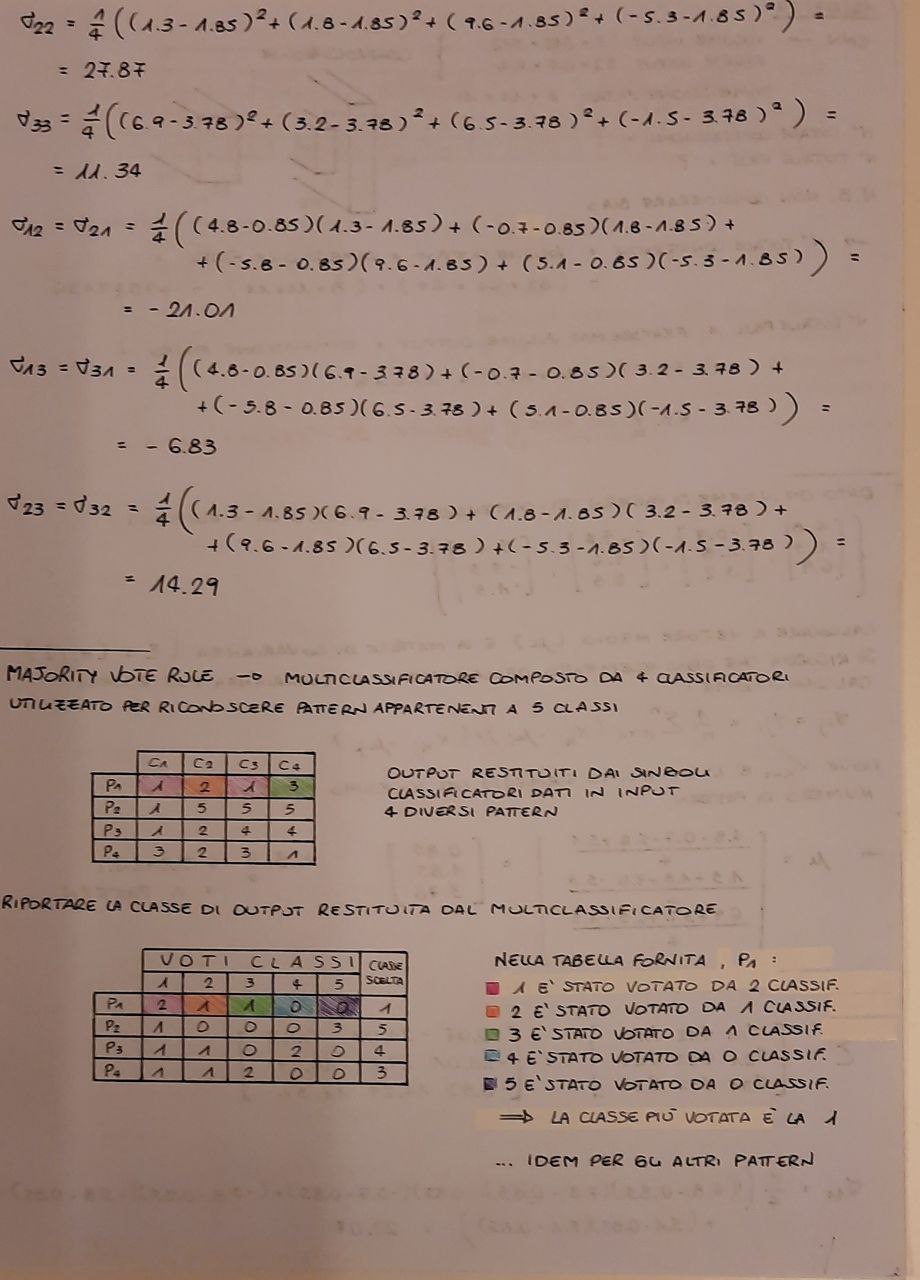 σ22 = 1/4 ((1.3-1.85)² + (1.8-1.85)² + (9.6-1.85)² + (-5.3-1.85)²) =
= 27.87
σ33 = 1/4 ((6.9-3.78)² + (3.2-3.78)² + (6.5-3.78)² + (-1.5-3.78)²) =
= 11.34
σ12 = σ21 = 1/4 ((4.8-0.85)(1.3-1.85) + (-0.7-0.85)(1.8-1.85) +
+ (-5.8-0.85)(9.6-1.85) + (5.1-0.85)(-5.3-1.85)) =
= -21.01
σ13 = σ31 = 1/4 ((4.8-0.85)(6.9-3.78) + (-0.7-0.85)(3.2-3.78) +
+ (-5.8-0.85)(6.5-3.78) + (5.1-0.85)(-1.5-3.78)) =
= -6.83
σ23 = σ32 = 1/4 ((1.3-1.85)(6.9-3.78) + (1.8-1.85)(3.2-3.78) +
+ (9.6-1.85)(6.5-3.78) + (-5.3-1.85)(-1.5-3.78)) =
= 14.29
MAJORITY VOTE RULE → MULTICLASSIFICATORE COMPOSTO DA 4 CLASSIFICATORI
UTILIZZATO PER RICONOSCERE PATTERN APPARTENENTI A 5 CLASSI
C1 C2 C3 C4
P1 1 2 1 3
P2 1 5 5 5
P3 1 2 4 4
P4 3 2 3 1
OUTPUT RESTITUITI DAI SINGOLI
CLASSIFICATORI DATI IN INPUT
4 DIVERSI PATTERN
RIPORTARE LA CLASSE DI OUTPUT RESTITUITA DAL MULTICLASSIFICATORE
VOTI CLASSI CLASSE SCELTA
1 2 3 4 5
P1 2 1 1 0 0 1
P2 1 0 0 0 3 5
P3 1 1 0 2 0 4
P4 1 1 2 0 0 3
NELLA TABELLA FORNITA, P1 :
1 E' STATO VOTATO DA 2 CLASSIF.
2 E' STATO VOTATO DA 1 CLASSIF.
3 E' STATO VOTATO DA 1 CLASSIF.
4 E' STATO VOTATO DA 0 CLASSIF.
5 E' STATO VOTATO DA 0 CLASSIF.
⇒ LA CLASSE PIÙ VOTATA È LA 1
... IDEM PER GLI ALTRI PATTERN